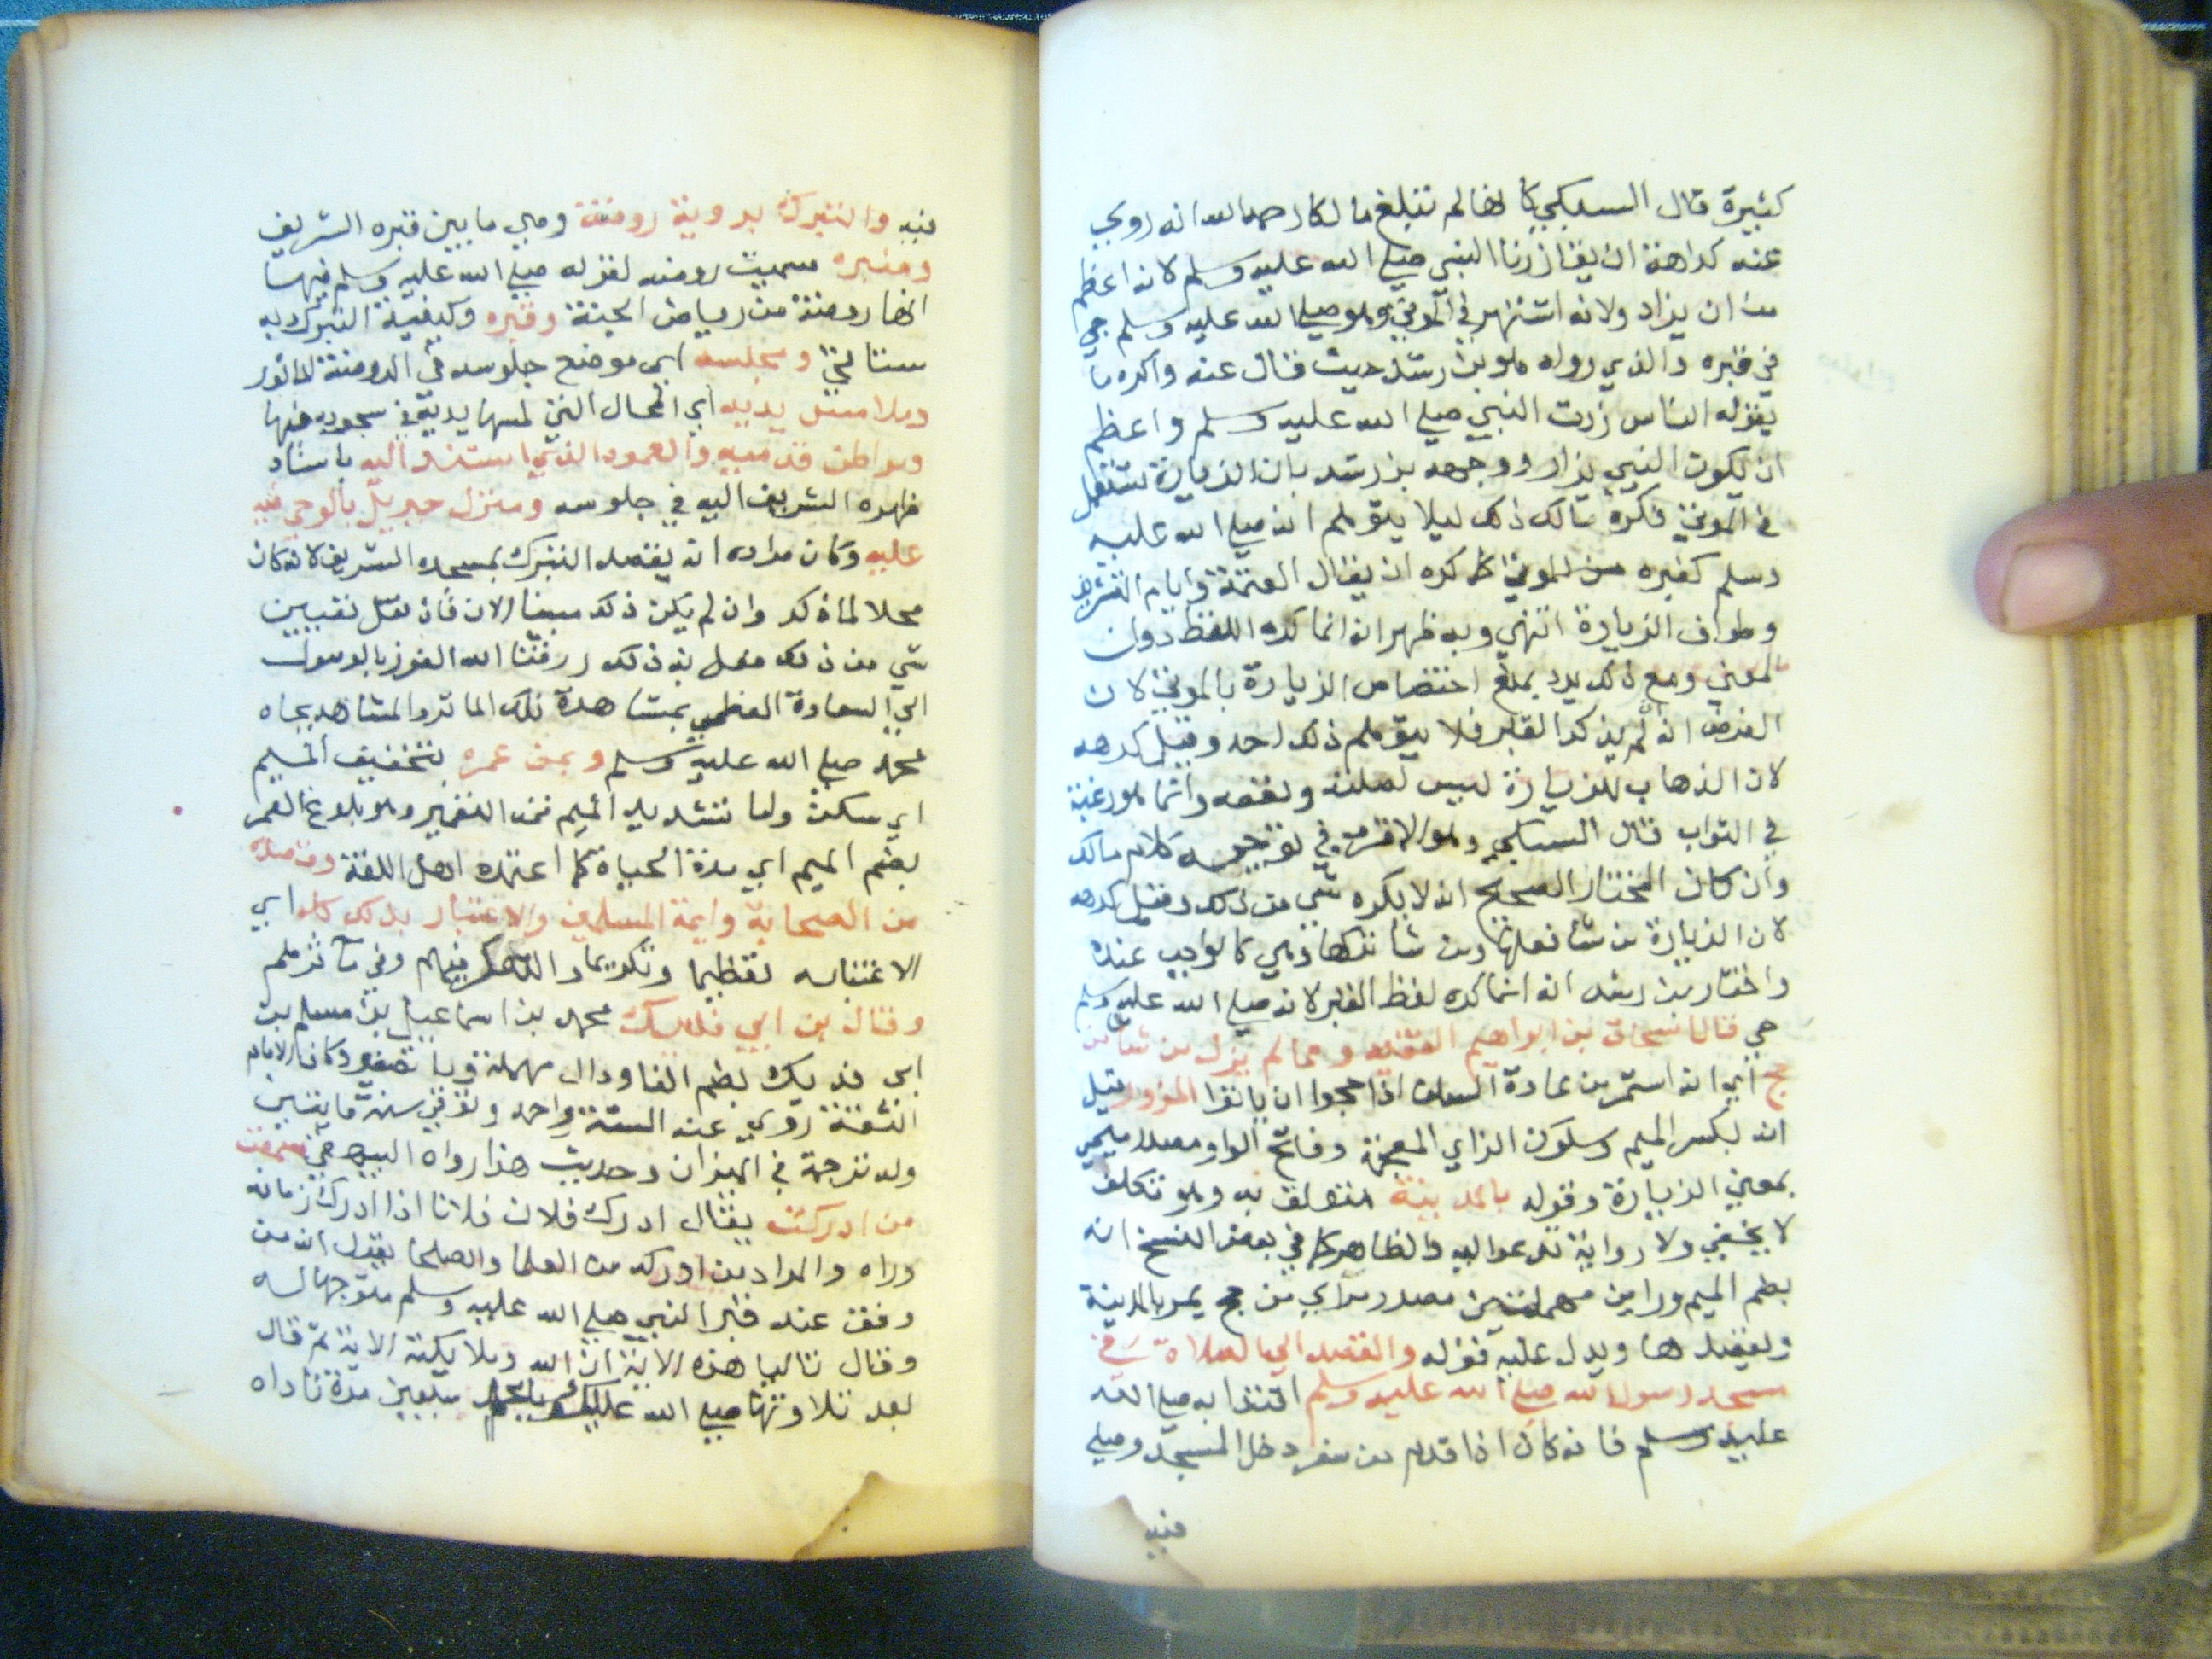 كثيرة قال السبكي كانها لم تبلغ مالكا رحمه الله انه روي
عنه كراهة ان يقال زرنا النبي صلي الله عليه وسلم لانه اعظم
من ان يزار ولانه اشتهر في الموتي وهو صلي الله عليه وسلم حي
في قبره والذي رواه هو بن رشد حيث قال عنه واكره ما
يقوله الناس زرت النبي صلي الله عليه وسلم واعظم
ان يكون النبي يزار ووجهه بن رشد بان الزيارة تستعمل
في الموتي فكره مالك ذلك ليلا يتوهم انه صلي الله عليه
وسلم كغيره من الموتي كما كره ان يقال العتمة وايام التشريق
وطواف الزيارة انتهي وبه ظهر انه انما كره اللفظ دون
المعني ومع ذلك يرد بمنع اختصاص الزيارة بالموتي لان
الفرض انه لم يذكر القبر فلا يتوهم ذلك احد وقيل كرهه
لان الذهاب للزيارة ليس لصلته ونفعه وانما هو رغبة
في الثواب قال السبكي وهو الاقرب في توجيه كلام مالك
وان كان المختار الصحيح انه لا يكره شي من ذلك وقيل كرهه
لان الزيارة من شا فعلها ومن شا تركها وهي كالواجب عنده
واختار بن رشد انه انما كره لفظ القبر لانه صلي الله عليه وسلم
حي قال اسحاق بن ابراهيم الفقيه ومما لم يزل من شان من
حج اي انه استمر من عادة السلف اذا حجوا ان ياتوا المزور قيل
انه بكسر الميم وسكون الزاي المعجمة وفتح الواو مصدر ميمي
بمعني الزيارة وقوله بالمدينة متعلق به وهو تكلف
لا يخفي ولا رواية تدعو اليه والظاهر كما في بعض النسخ انه
بضم الميم وراين مهملتين مصدر مر اي من حج يمر بالمدينة
ويقصدها ويدل عليه قوله والقصد الي الصلاة في
مسجد رسول الله صلي الله عليه وسلم اقتدا به صلي الله
عليه وسلم فانه كان اذا قدم من سفر دخل المسجد وصلي
فيه
فيه والتبرك برؤية روضته وهي ما بين قبره الشريف
ومنبره سميت روضه لقوله صلي الله عليه وسلم فيها
انها روضة من رياض الجنة وقبره وكيفية التبرك به
ستاتي ومجلسه اي موضع جلوسه في الروضة الماثور
وملامس يديه اي المحال التي لمسها بيديه في سجوده فيها
ومواطن قدميه والعمود الذي استند اليه باسناد
ظهره الشريف اليه في جلوسه ومنزل جبريل بالوحي فيه
عليه وكان مراده انه يقصد التبرك بمسجده الشريف لانه كان
محلا لما ذكر وان لم يكن ذلك مبينا الان فان نقل تعيين
شي من ذلك فعل به ذلك ررزقنا الله الفوز بالوصول
الي السعادة العظمي بمشاهدة تلك الماثر والمشاهد بجاه
محمد صلي الله عليه وسلم وبمن عمره بتخفيف الميم
اي سكنه واما تشديد الميم فمن التعمير وهو بلوغ العمر
بضم الميم اي مدة الحياة كما اعتمده اهل اللغة وقصده
من الصحابة وايمة المسلمين والاعتبار بذلك كله اي
الاعتبار به تعظيما وتكريما و فيهم وفي مآثرهم
وقال بن ابي فديك محمد بن اسماعيل بن مسلم بن
ابي فديك بضم الفا ودال مهملة ويا تصغير وكان الامام
الثقة روي عنه الستة واحمد وتوفي سنة مايتين
وله ترجمة في الميزان وحديث هذا رواه البيهقي سمعت
من ادركت يقال ادرك فلان فلانا اذا ادرك زمانه
وراه والمراد من ادركه من العلما والصلحا يقول انه من
وقف عند قبر النبي صلي الله عليه وسلم متوجها له
وقال تاليا هذه الاية ان الله وملايكته الاية ثم قال
بعد تلاوتها صلي الله عليك يا محمد سبعين مرة ناداه